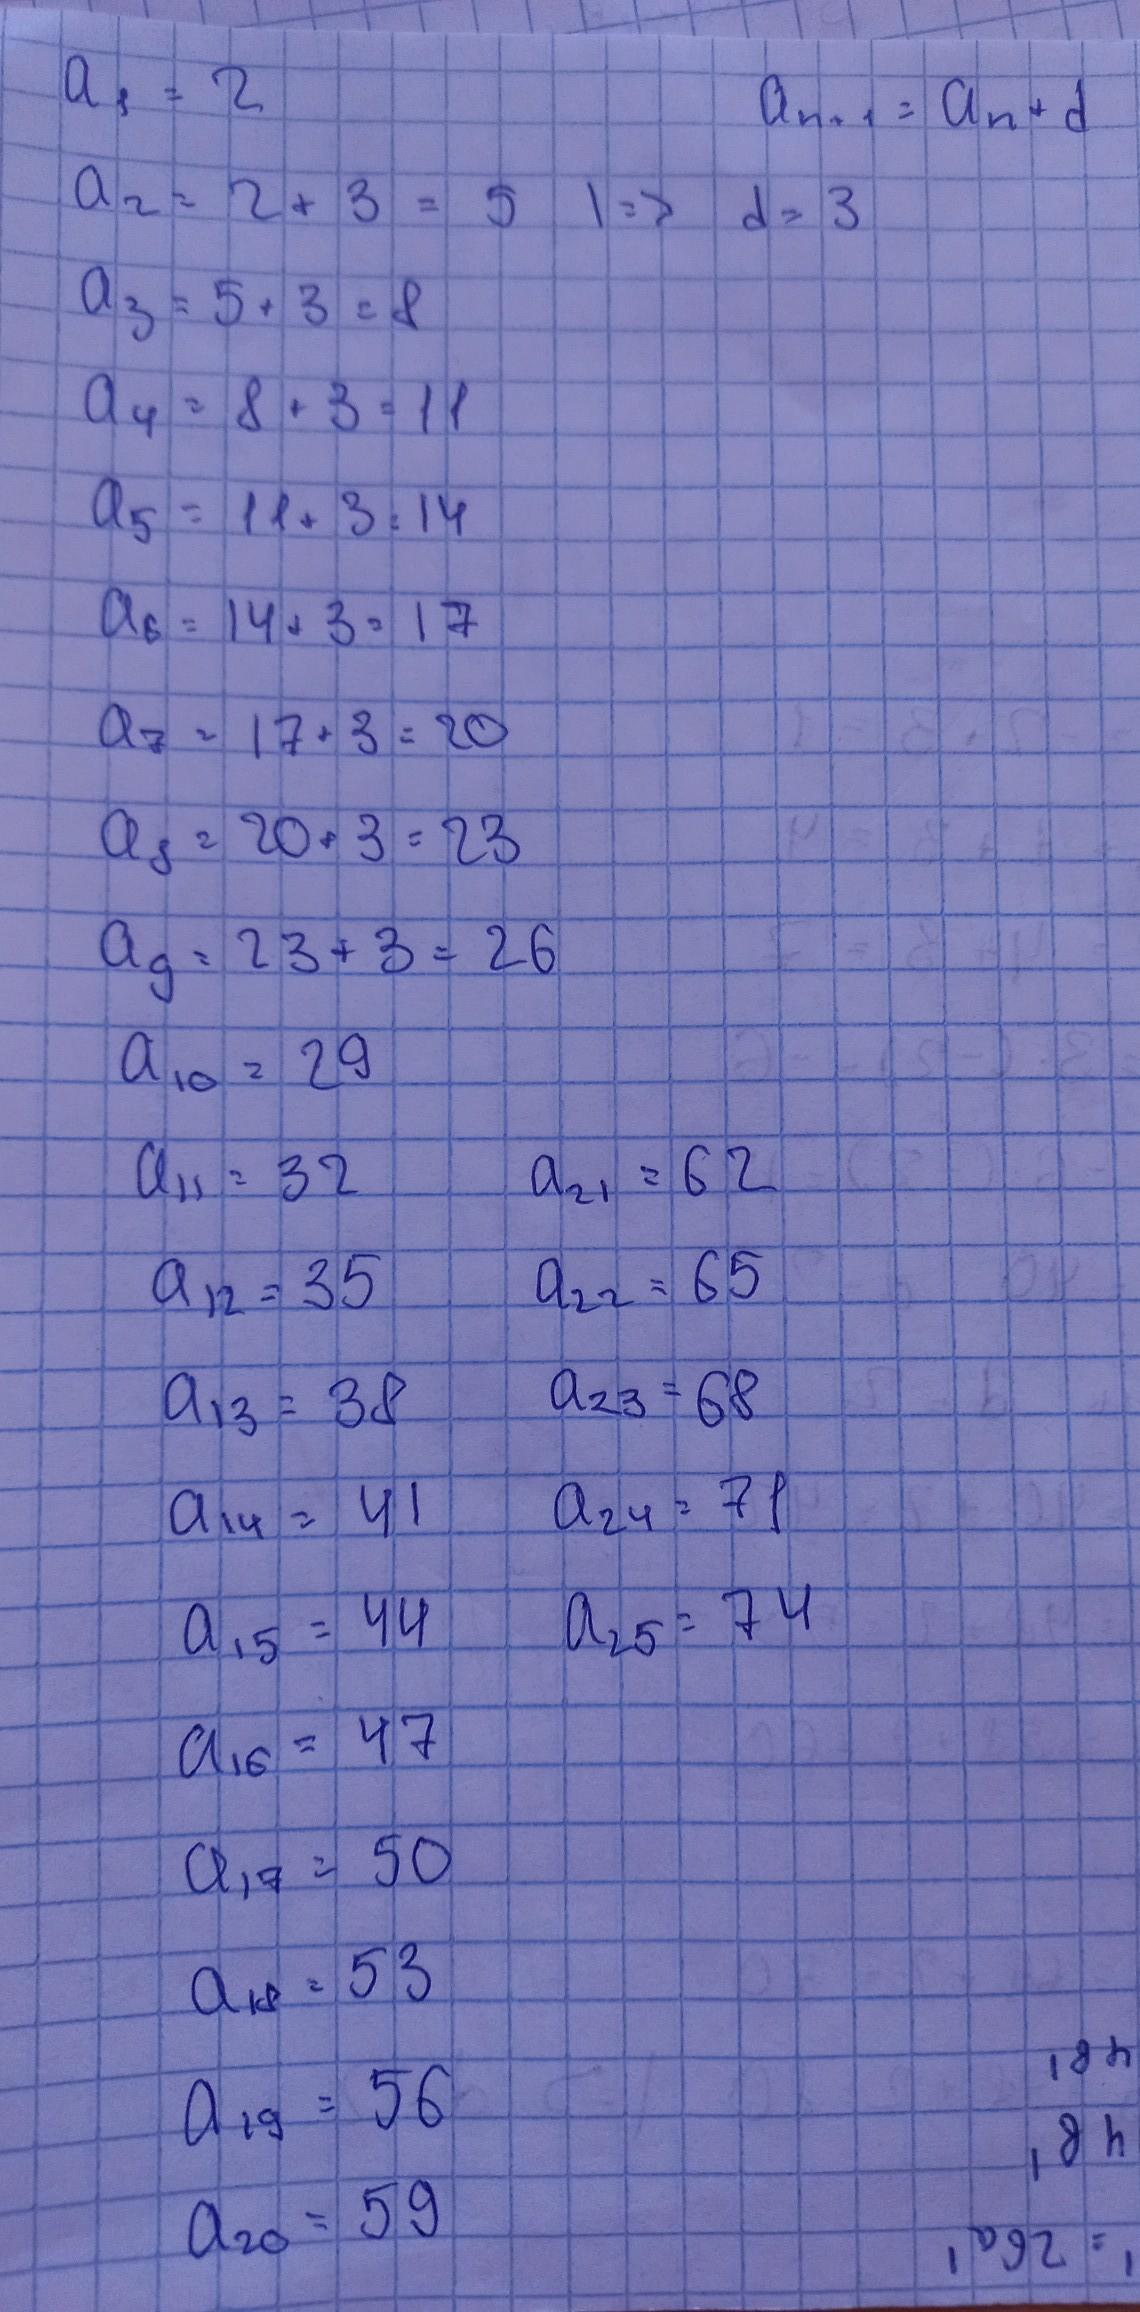 a₁ = 2 aₙ₊₁ = aₙ + d
a₂ = 2 + 3 = 5 | => d = 3
a₃ = 5 + 3 = 8
a₄ = 8 + 3 = 11
a₅ = 11 + 3 = 14
a₆ = 14 + 3 = 17
a₇ = 17 + 3 = 20
a₈ = 20 + 3 = 23
a₉ = 23 + 3 = 26
a₁₀ = 29
a₁₁ = 32 a₂₁ = 62
a₁₂ = 35 a₂₂ = 65
a₁₃ = 38 a₂₃ = 68
a₁₄ = 41 a₂₄ = 71
a₁₅ = 44 a₂₅ = 74
a₁₆ = 47
a₁₇ = 50
a₁₈ = 53
a₁₉ = 56
a₂₀ = 59